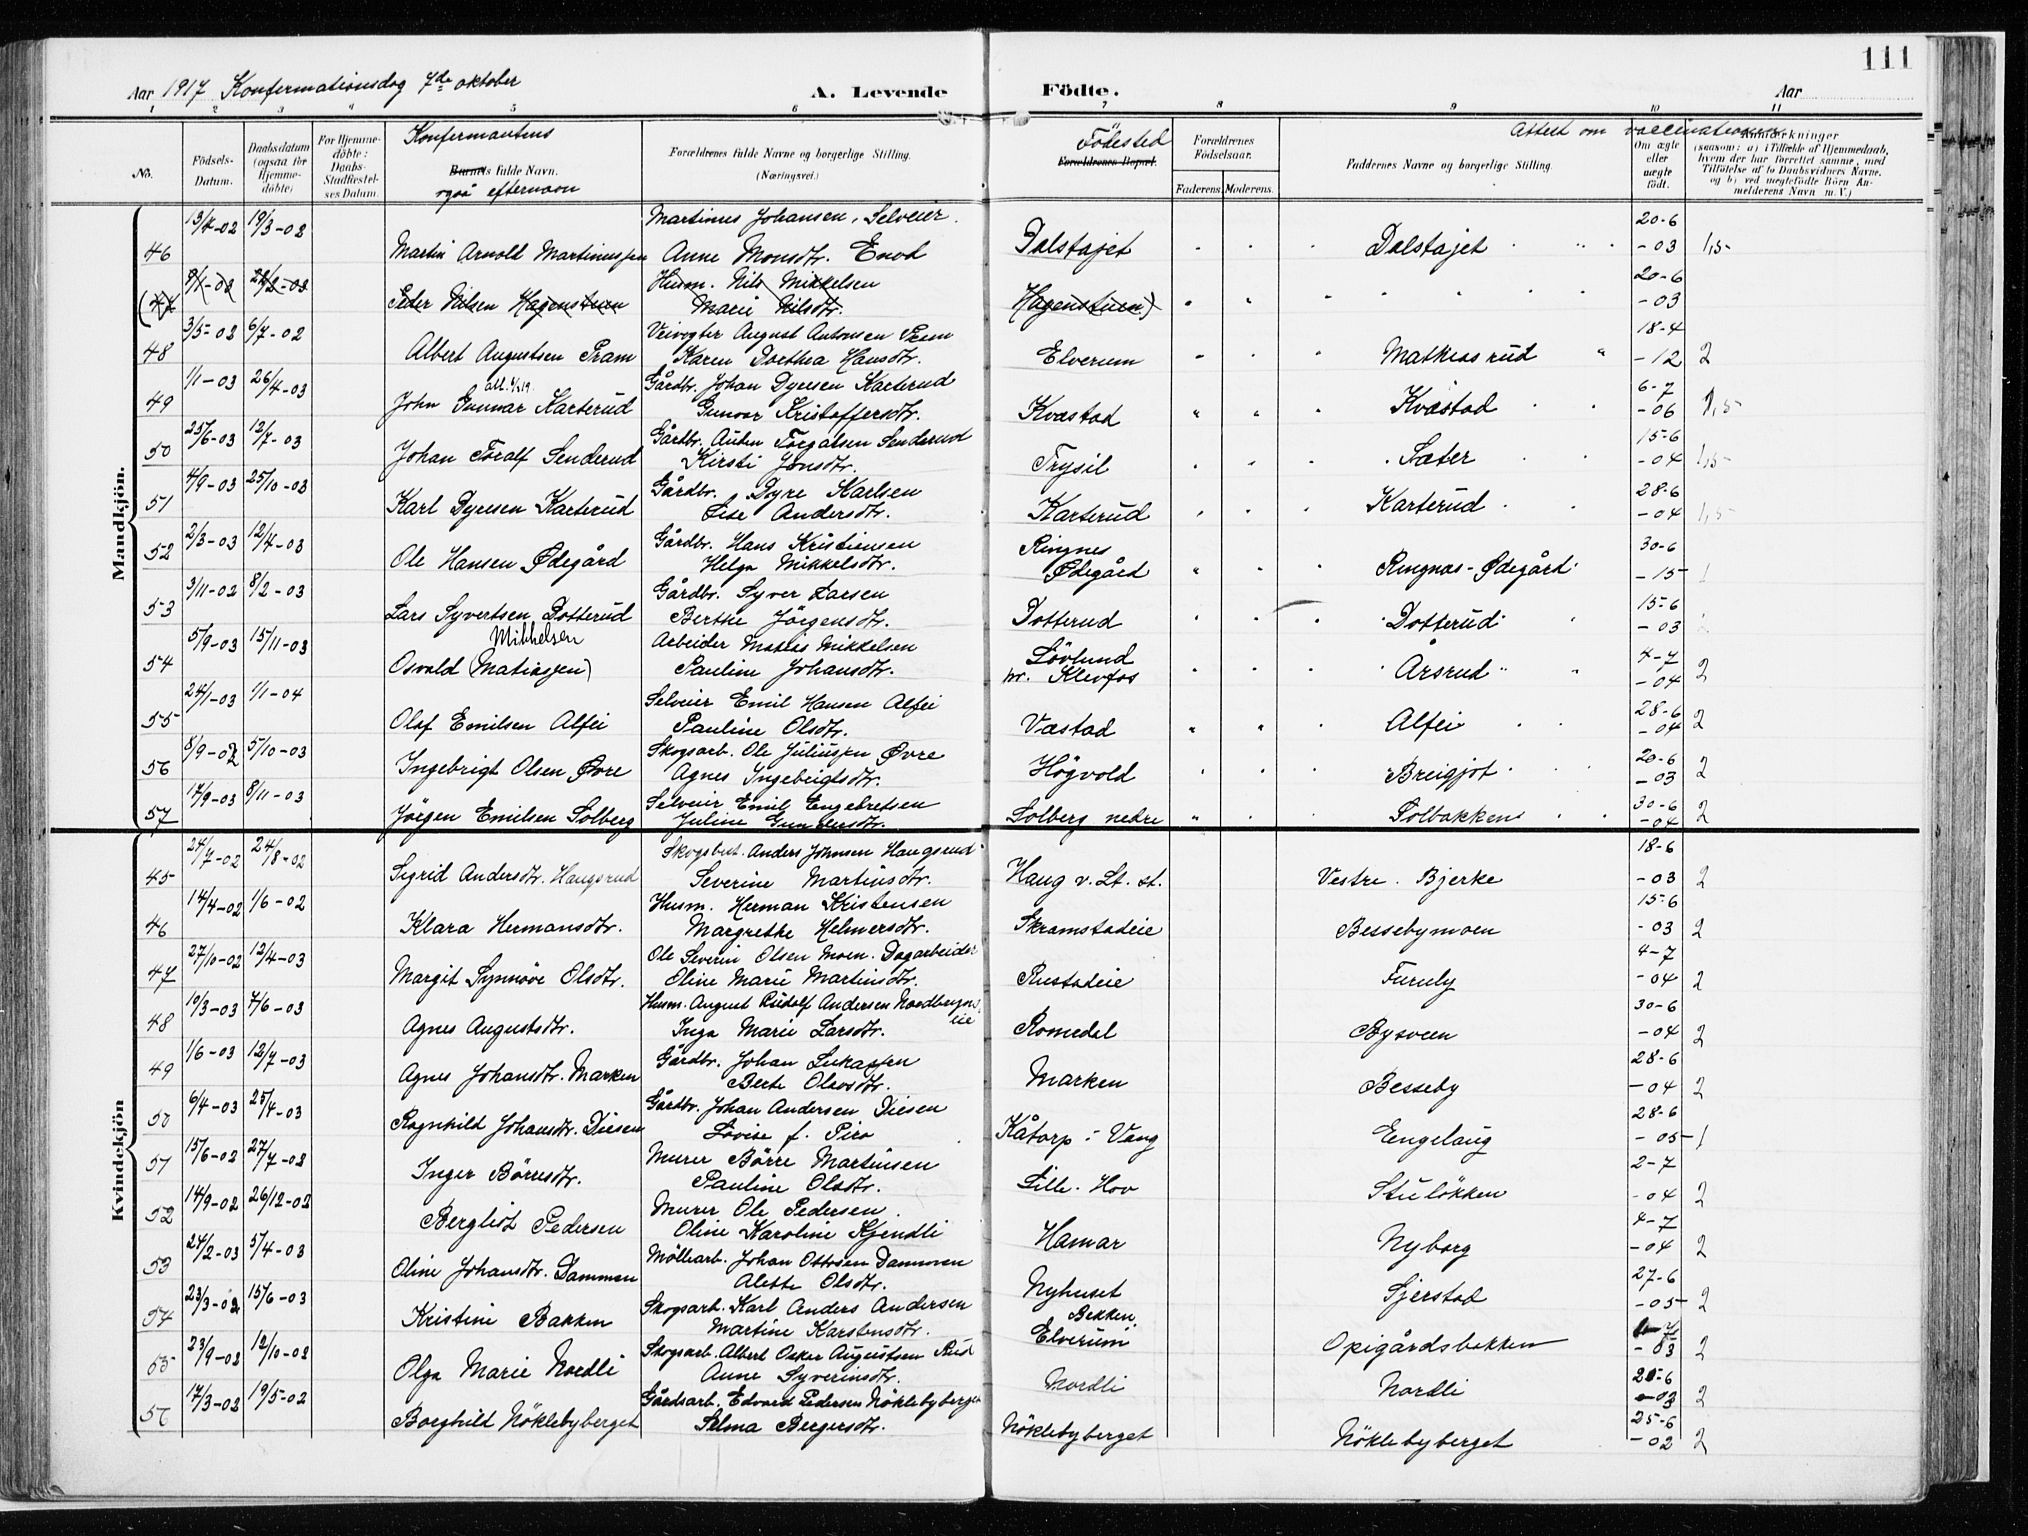 111
Aar 1917 Konfermationsdag 7de oktober A. Levende Födte. Aar
1 2 3 " 5 6 7 8 9 10 11
No. Födsels-Datum. Daabsdatum (ogsaa for Hjemmedöbte) For Hjemmedöbte: Daabs-Stadfæstelses Datum. Konfermantens Barnets fulde Navn. også efternavn Forældrenes fulde Navne og borgerlige Stilling. (Næringsvei.) Födested Forældrenes Bopæl. Forældrenes Födselsaar. Faderens. Moderens. Faddernes Navne og borgerlige Stilling. Attest om vaccinationen Om ægte eller uægte födt. Anmærkninger (saasom: a) i Tilfælde af Hjemmedaab, hvem der har forrettet samme, med Tilföielse af to Daabsvidners Navne, og b) ved uægtefödte Börn Anmelderens Navn m. V.)
Mandkjön.
46 19/3-02 Martin Arnold Martinussen Martinus Johansen, Selveier. Anne Monsdtr. Enod Dalstajet Dalstajet 20-6 -03 1,5
(47 Peder Nilsen Hagenstuen Husm. Nils Mikkelsen Marie Nilsdtr. Hagenstuen) 20-6 -03
48 3/5-02 6/7-02 Albert Augustsen Pram Veivogter August Antonsen Pram Karen Dorthea Hansdtr. Elverum Mathiasrud 18-4 -12 2
49 1/1-03 26/4-03 John Gunnar Karterud Gårdbr. Johan Dyresen Karterud Gunvor Kristoffersdtr. Kvæstad Kvæstad 6-7 -06 1,5
50 25/6-03 12/7-03 Johan Toralf Senderud Gårdbr. Auten Torgalsen Senderud Kirsti Jonsdtr. Trysil Sæter 15-6 -04 1,5
51 4/9-03 25/10-03 Karl Dyresen Karterud Gårdbr. Dyre Karlsen Lise Andersdtr. Karterud Karterud 28-6 -04 1,5
52 2/3-03 12/4-03 Ole Hansen Ødegård Gårdbr. Hans Kristiansen Helga Mikkelsdtr. Ringnes Ødegård Ringnas-Ødegård 30-6 -15 1
53 3/11-02 8/2-03 Lars Syvertsen Dotterud Gårdbr. Syver Larsen Berthe Jörgensdtr. Dotterud Dotterud 15-6 -03
54 5/9-03 15/11-03 Osvald (Matiassen) Mikkelsen Arbeider Matias Mikkelsen Pauline Johansdtr. Lövlund nr. Klevfos Årsrud 4-7 -04 2
55 24/1-03 1/1-04 Olaf Emilsen Alfei Selveier Emil Hansen Alfei Pauline Olsdtr. Væstad Alfei 28-6 -04 2
56 8/9-02 5/10-03 Ingebrigt Olsen Øvre Skogsarb. Ole Juliussen Øvre Agnes Ingebrigtsdtr. Högvold Breigjot 20-6 -03 2
57 17/9-03 8/11-03 Jörgen Emilsen Solberg Selveier Emil Engebretsen Juline Gundersdtr. Solberg nedre Solbakken 30-6 -04 2
Kvindekjön
45 24/7-02 24/8-02 Sigrid Andersdtr. Haugsrud Skogsbest. Anders Johnsen Haugsrud Severine Martinsdtr. Haug v. Lt. st. Vestre Bjerke 18-6 -03 2
46 14/4-02 1/6-02 Klara Hermansdtr. Husm. Herman Kristensen Margrethe Helmersdtr. Skramstadeie Bessebymoen 15-6 -03 2
47 27/10-02 12/4-03 Margit Synnöve Olsdtr. Ole Severin Olsen Moen. Dagarbeider Oline Marie Martinsdtr. Rustadeie Furuly 4-7 -04 2
48 10/3-03 7/6-03 Agnes Augustsdtr. Husm. August Rudolf Andersen Nordbergseie Inga Marie Larsdtr. Romedal Bysveen 30-6 -04 2
49 1/6-03 12/7-03 Agnes Johansdtr. Marken Gårdbr. Johan Lukassen Berte Olavsdtr. Marken Besseby 28-6 -04 2
50 6/4-03 25/4-03 Ragnhild Johansdtr. Diesen Gårdbr. Johan Andersen Diesen Lovise f. Piro Kåtorp i Vang Engelaug 28-6 -05 1
51 15/6-02 27/7-02 Inger Börresdtr. Murer Börre Martinsen Pauline Olsdtr. Lille-Hov Stulökken 2-7 -04 2
52 14/9-02 26/12-02 Bergliot Pedersen Murer Ole Pedersen Oline Karoline Kjendli Hamar Nyborg 4-7 -04 2
53 24/2-03 5/4-03 Oline Johansdtr. Dammen Möllearb. Johan Ottosen Dammen Alette Olsdtr. Nyhuset Sjerstad 27-6 -05 2
54 23/3-02 15/6-03 Kristine Bakken Skogsarb. Karl Anders Andersen Martine Karstensdtr. Bekken, Elverum Opigårdsbakken -03 2
55 23/9-02 12/10-02 Olga Marie Nordli Skogsarb. Albert Oskar Augustsen Rud Anne Syverinsdtr. Nordli Nordli 25-6 -03 2
57 17/3-02 19/5-02 Borghild Nöklebyberget Gårdsarb. Edvard Pedersen Nöklebyberget Selma Bergersdtr. Nöklebyberget Nöklebyberget 25-6 -02 2